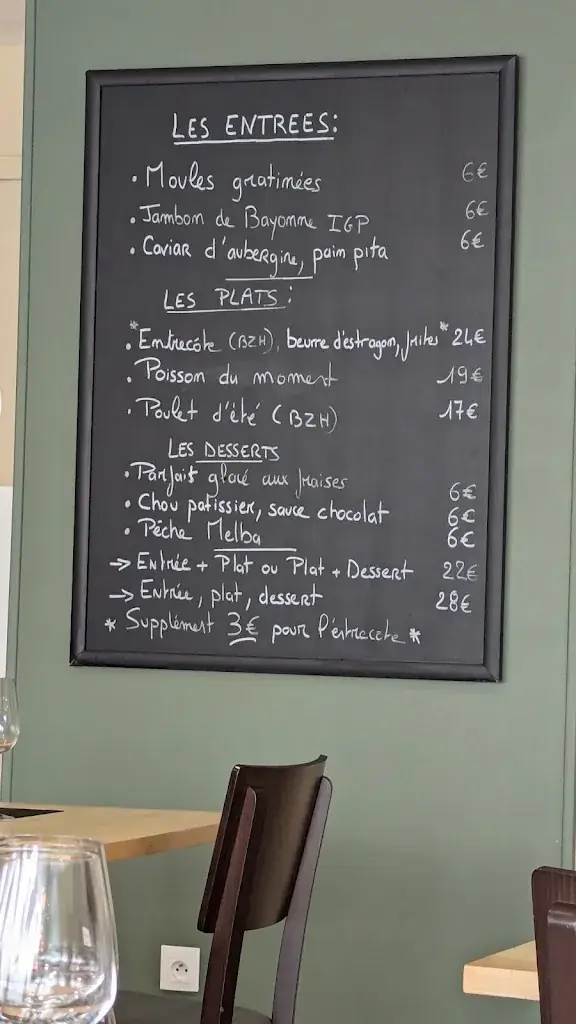 LES ENTREES:
• Moules gratinées 6€
• Jambon de Bayonne IGP 6€
• Caviar d'aubergine, pain pita 6€
LES PLATS:
• *Entrecôte (BZH), beurre d'estragon, frites* 24€
• Poisson du moment 19€
• Poulet d'été (BZH) 17€
LES DESSERTS
• Parfait glacé aux fraises 6€
• Chou patissier, sauce chocolat 6€
• Pêche Melba 6€
→ Entrée + Plat ou Plat + Dessert 22€
→ Entrée, plat, dessert 28€
* Supplément 3€ pour l'entrecote *